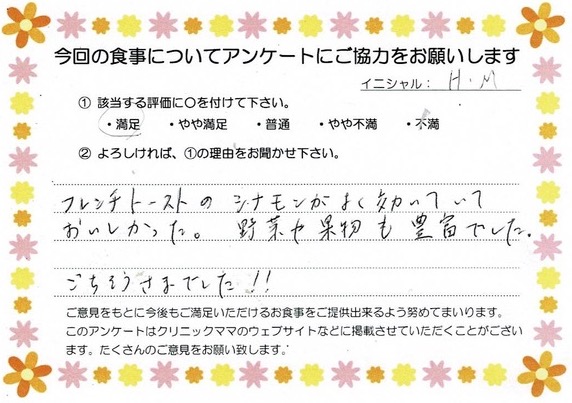 今回の食事についてアンケートにご協力をお願いします
イニシャル： H・M
① 該当する評価に○を付けて下さい。
・満足 ・やや満足 ・普通 ・やや不満 ・不満
② よろしければ、①の理由をお聞かせ下さい。
フレンチトーストの シナモンがよく効いていて
おいしかった。 野菜や果物も豊富でした。
ごちそうさまでした!!
ご意見をもとに今後もご満足いただけるお食事をご提供出来るよう努めてまいります。
このアンケートはクリニックママのウェブサイトなどに掲載させていただくことがござい
ます。たくさんのご意見をお願い致します。